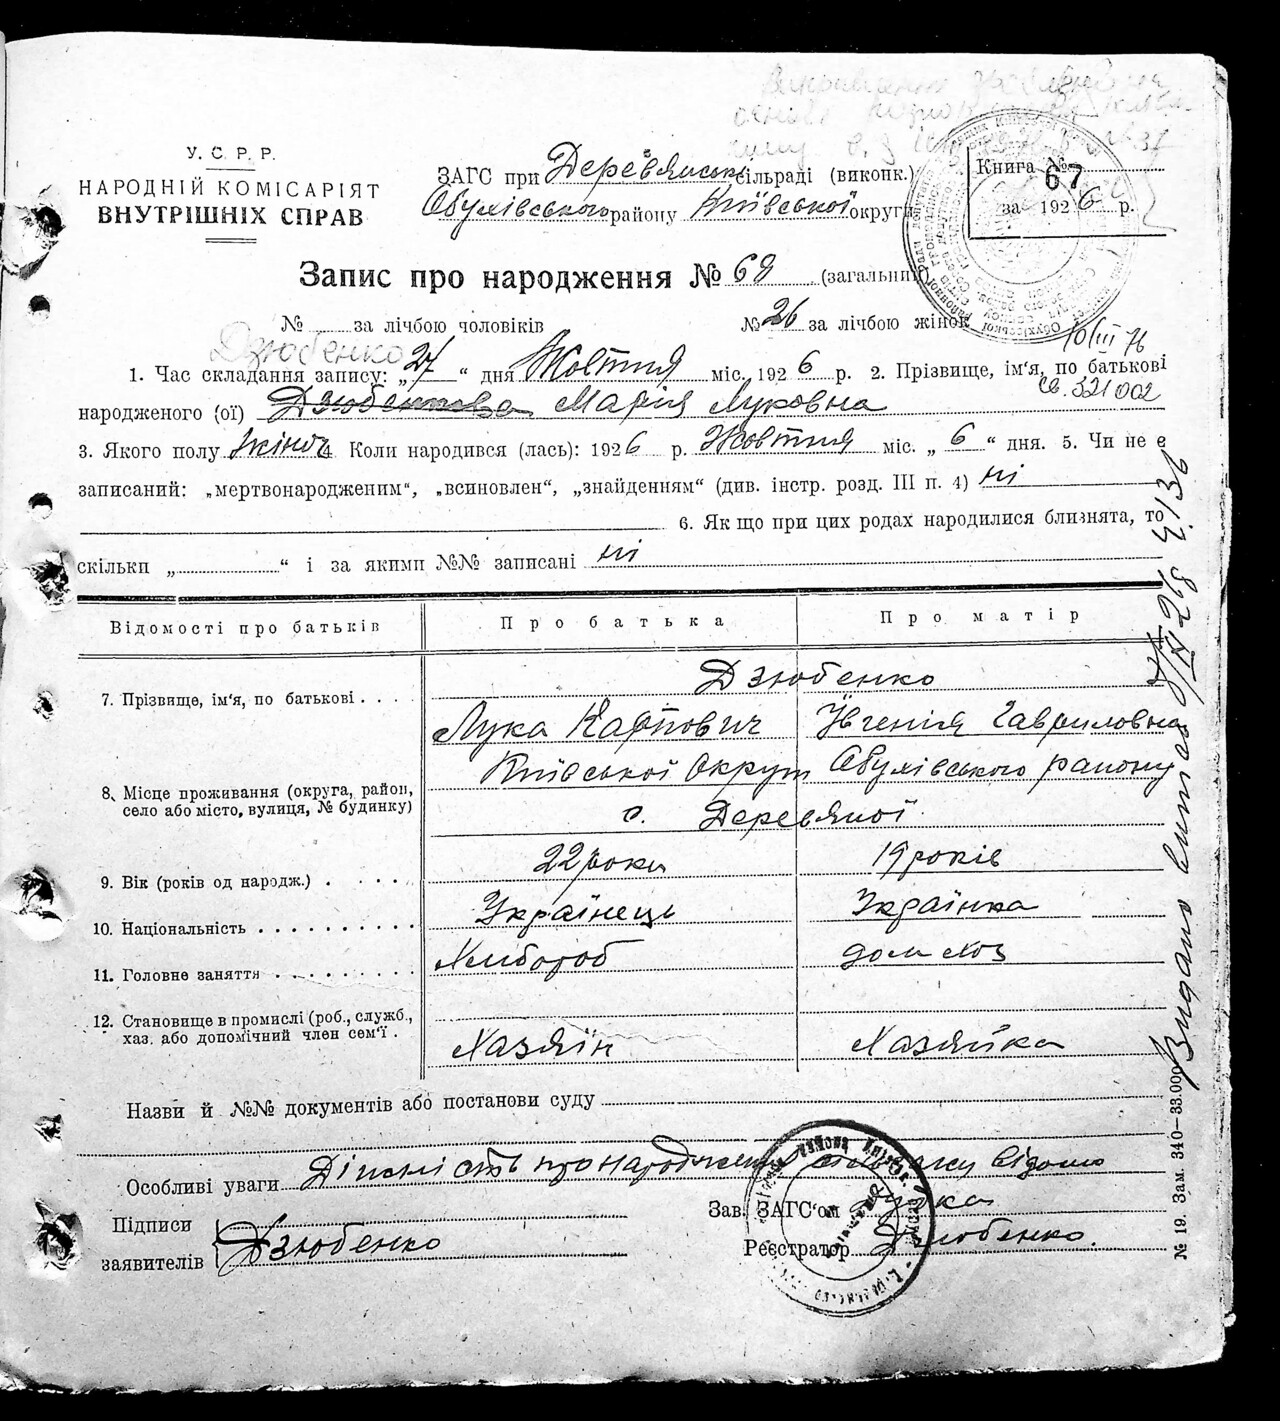 У. С. Р. Р.
НАРОДНІЙ КОМІСАРІЯТ
ВНУТРІШНІХ СПРАВ
ЗАГС при Деревянській сільраді (виконк.)
Обухівського району Київської округи
Книга №
67
за 1926 р.
Запис про народження № 68 (загальний)
№ за лічбою чоловіків
№ 26 за лічбою жінок
10/III 76
Дзюбенко
1. Час складання запису: „27“ дня Жовтня міс. 1926 р. 2. Прізвище, ім'я, по батькові
св. 321002
народженого (ої) Дзюбенкова Марія Луковна
3. Якого полу жіноч 4. Коли народився (лась): 1926 р. Жовтня міс. „6“ дня. 5. Чи не є
записаний: „мертвонародженим“, „всиновлен“, „знайденням“ (див. інстр. розд. III п. 4) ні
6. Як що при цих родах народилися близнята, то
скільки „ “ і за якими №№ записані ні
Відомості про батьків
Про батька
Про матір
Дзюбенко
7. Прізвище, ім'я, по батькові . . . .
Лука Карпович
Ївгенія Гавриловна
Київської Округи Обухівського району
8. Місце проживання (округа, район, село або місто, вулиця, № будинку)
с. Деревяної
9. Вік (років од народж.) . . . . .
22 роки
19 років
10. Національність . . . . . . . . . .
Українець
Українка
11. Головне заняття . . . . . . . . .
Хлібороб
дом хоз
12. Становище в промислі (роб., служб., хаз. або допомічний член сем'ї .
Хазяїн
Хазяйка
Назви й №№ документів або постанови суду
Особливі уваги Дійсність про народження сільраку відомо
Підписи
заявителів
Дзюбенко
Зав. ЗАГС'ом
Реєстратор Дзюбенко.
Видано витяг
№ 19. Зам. 340—33.000